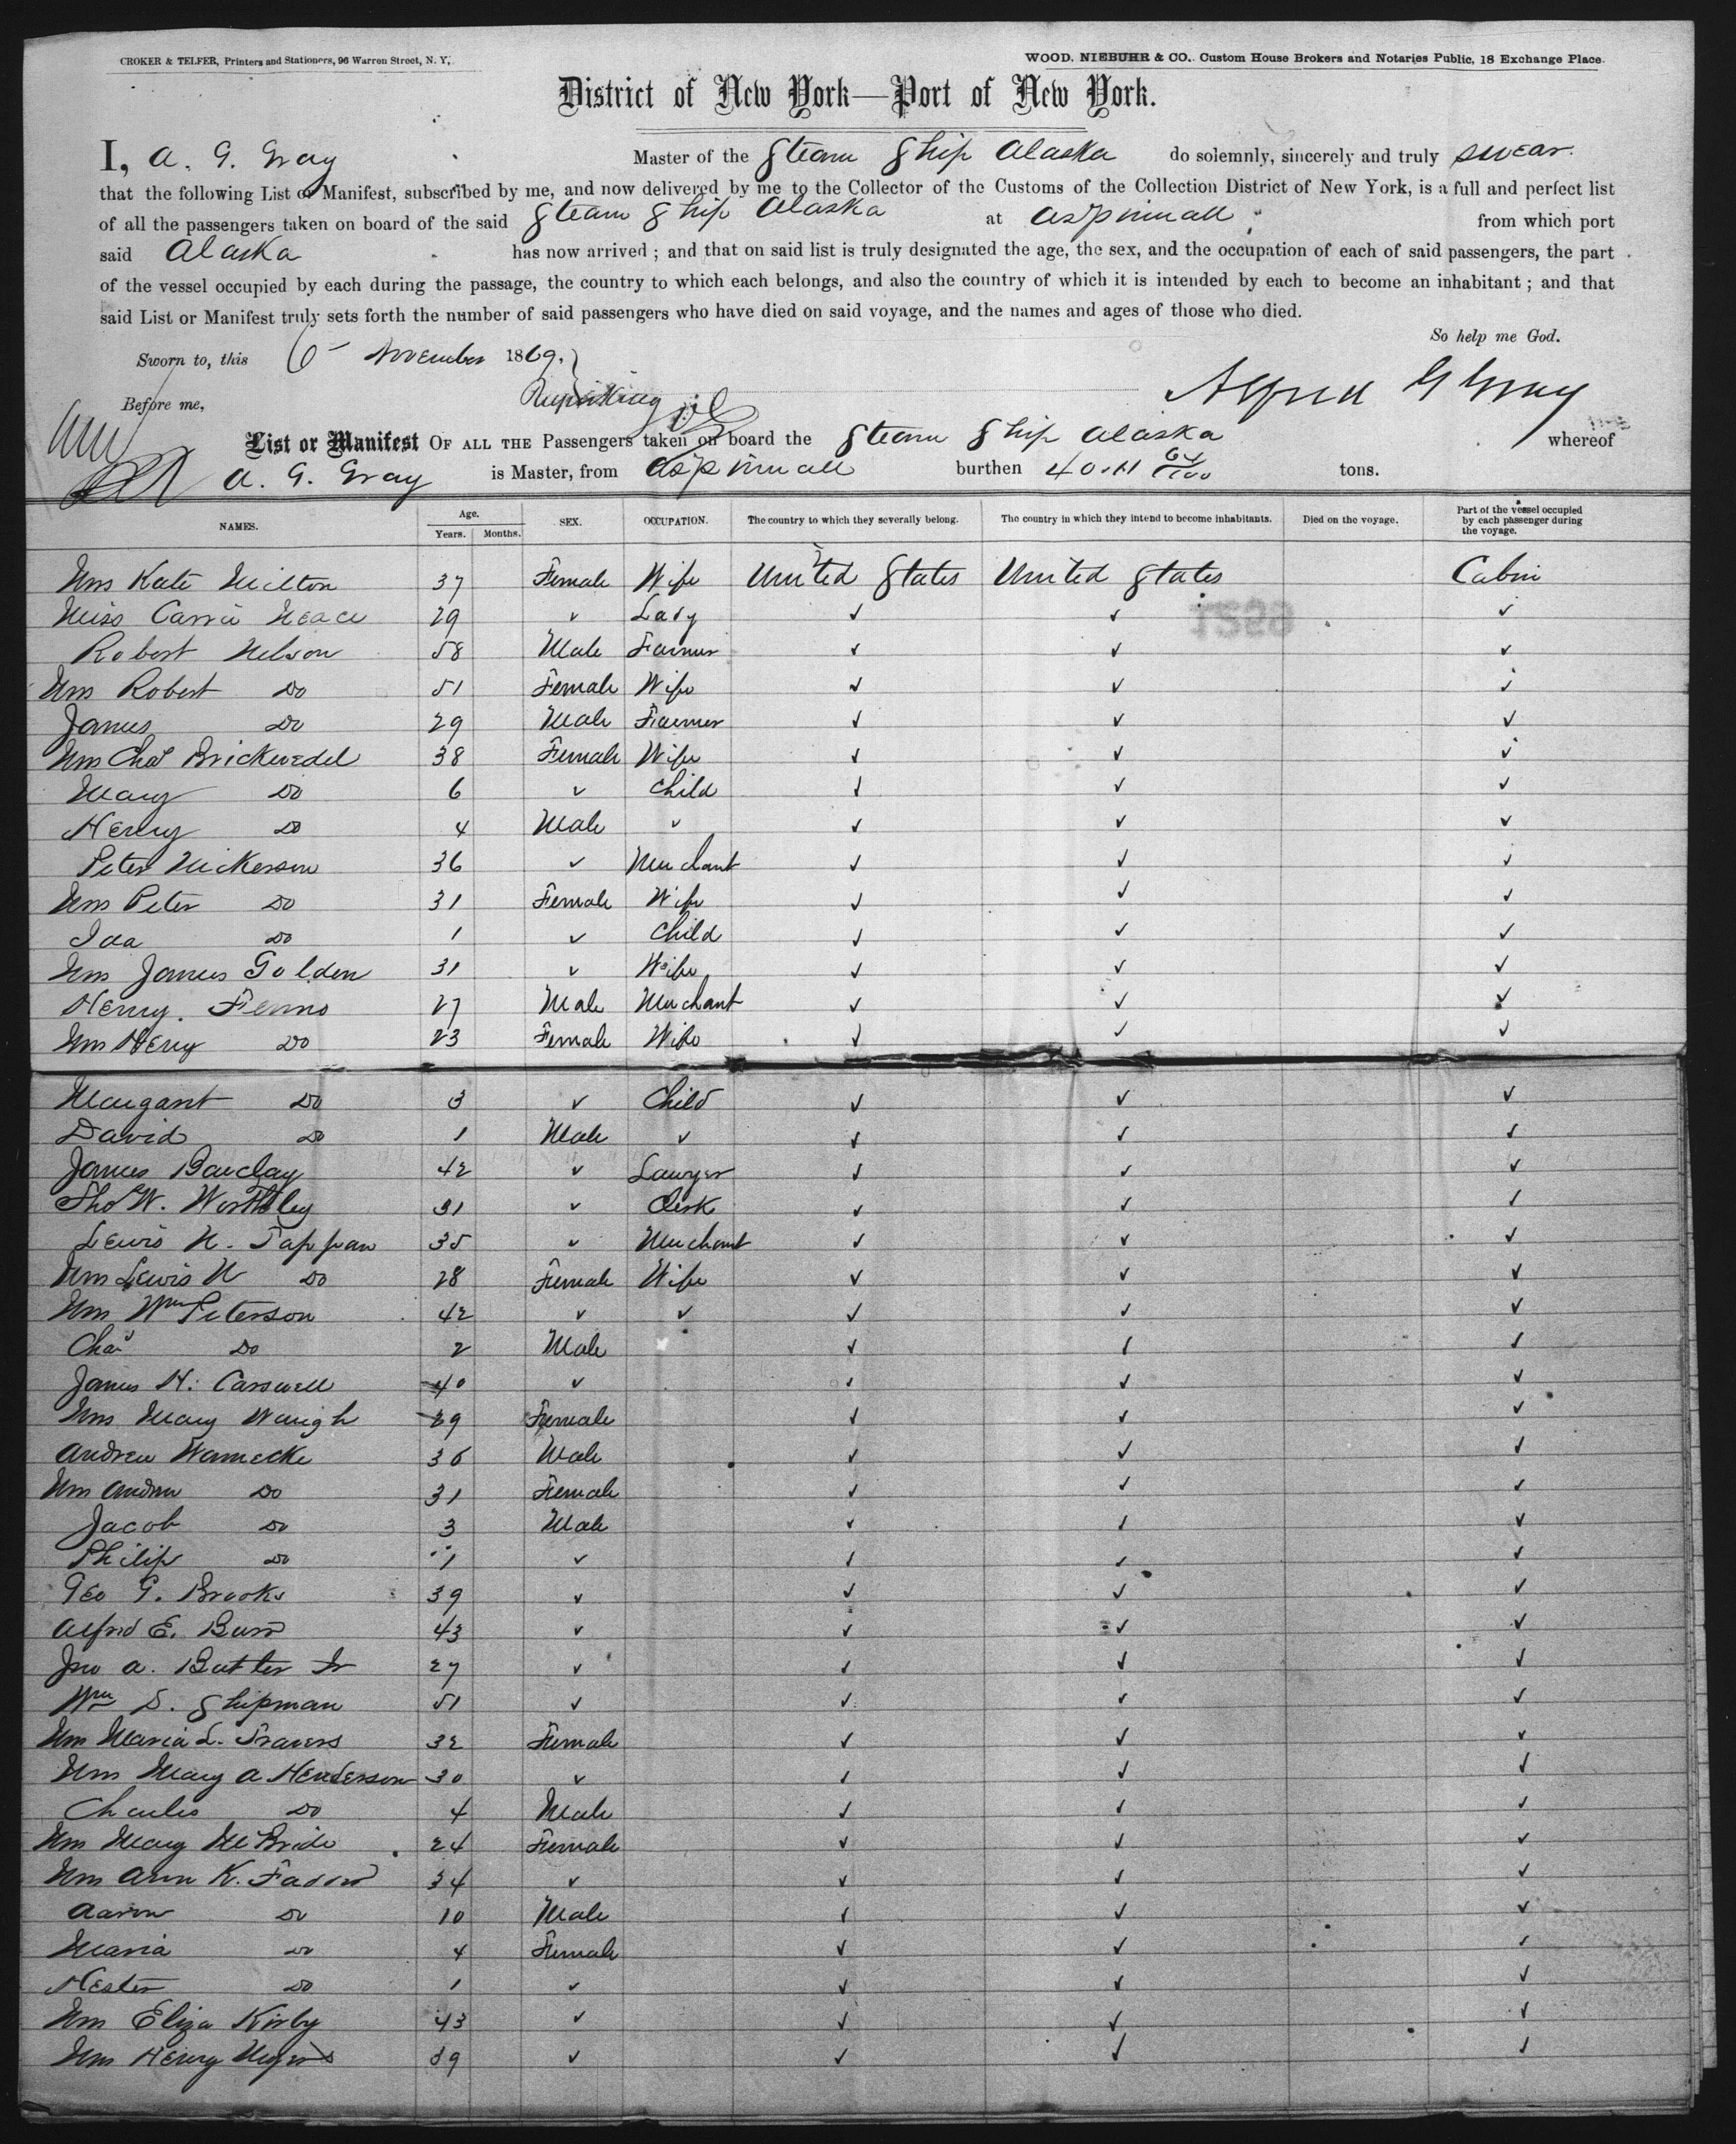 CROKER & TELFER, Printers and Stationers, 96 Warren Street, N. Y.
WOOD, NIEBUHR & CO. Custom House Brokers and Notaries Public, 18 Exchange Place.
District of New York—Port of New York.
I, A. G. Gray Master of the Steam Ship Alaska do solemnly, sincerely and truly swear.
that the following List or Manifest, subscribed by me, and now delivered by me to the Collector of the Customs of the Collection District of New York, is a full and perfect list
of all the passengers taken on board of the said Steam Ship Alaska at Aspinwall from which port
said Alaska has now arrived ; and that on said list is truly designated the age, the sex, and the occupation of each of said passengers, the part
of the vessel occupied by each during the passage, the country to which each belongs, and also the country of which it is intended by each to become an inhabitant ; and that
said List or Manifest truly sets forth the number of said passengers who have died on said voyage, and the names and ages of those who died.
So help me God.
Sworn to, this 6 November 1869.
Alfred G Gray
Before me,
List or Manifest OF ALL THE Passengers taken on board the Steam Ship Alaska whereof
A. G. Gray is Master, from Aspinwall burthen 4011 64/100 tons.
NAMES. Age. Years. Months. SEX. OCCUPATION. The country to which they severally belong. The country in which they intend to become inhabitants. Died on the voyage. Part of the vessel occupied by each passenger during the voyage.
Mrs Kate Milton 37 Female Wife United States United States Cabin
Miss Carrie Neace 29 ✓ Lady ✓ ✓ ✓
Robert Nelson 58 Male Farmer ✓ ✓ ✓
Mrs Robert Do 51 Female Wife ✓ ✓ ✓
James Do 29 Male Farmer ✓ ✓ ✓
Mrs Chas Brickwedel 38 Female Wife ✓ ✓ ✓
Mary Do 6 ✓ Child ✓ ✓ ✓
Henry Do 4 Male ✓ ✓ ✓ ✓
Peter Nickerson 36 ✓ Merchant ✓ ✓ ✓
Mrs Peter Do 31 Female Wife ✓ ✓ ✓
Ida Do 1 ✓ Child ✓ ✓ ✓
Mrs James Golden 31 ✓ Wife ✓ ✓ ✓
Henry Ferms 27 Male Merchant ✓ ✓ ✓
Mrs Henry Do 23 Female Wife ✓ ✓ ✓
Margaret Do 3 ✓ Child ✓ ✓ ✓
David Do 1 Male ✓ ✓ ✓ ✓
James Barclay 42 ✓ Lawyer ✓ ✓ ✓
Thos W. Worthley 31 ✓ Clerk ✓ ✓ ✓
Lewis N. Tappan 35 ✓ Merchant ✓ ✓ ✓
Mrs Lewis N Do 28 Female Wife ✓ ✓ ✓
Mrs Wm Peterson 42 ✓ ✓ ✓ ✓ ✓
Chas Do 2 Male ✓ ✓ ✓
James H. Carswell 40 ✓ ✓ ✓ ✓
Mrs Mary Waugh 29 Female ✓ ✓ ✓
Andrew Warnecke 36 Male ✓ ✓ ✓
Mrs Andrew Do 31 Female ✓ ✓ ✓
Jacob Do 3 Male ✓ ✓ ✓
Philip Do 1 ✓ ✓ ✓ ✓
Geo G. Brooks 39 ✓ ✓ ✓ ✓
Alfred E. Burr 43 ✓ ✓ ✓ ✓
Jno A. Butler Jr 27 ✓ ✓ ✓ ✓
Wm D. Shipman 51 ✓ ✓ ✓ ✓
Mrs Maria L. Travers 32 Female ✓ ✓ ✓
Mrs Mary A Henderson 30 ✓ ✓ ✓ ✓
Charles Do 4 Male ✓ ✓ ✓
Mrs Mary McBride 24 Female ✓ ✓ ✓
Mrs Ann K. 34 ✓ ✓ ✓ ✓
Aaron Do 10 Male ✓ ✓ ✓
Maria Do 4 Female ✓ ✓ ✓
Hester Do 1 ✓ ✓ ✓ ✓
Mrs Eliza Kirby 43 ✓ ✓ ✓ ✓
Mrs Henry Myers 39 ✓ ✓ ✓ ✓